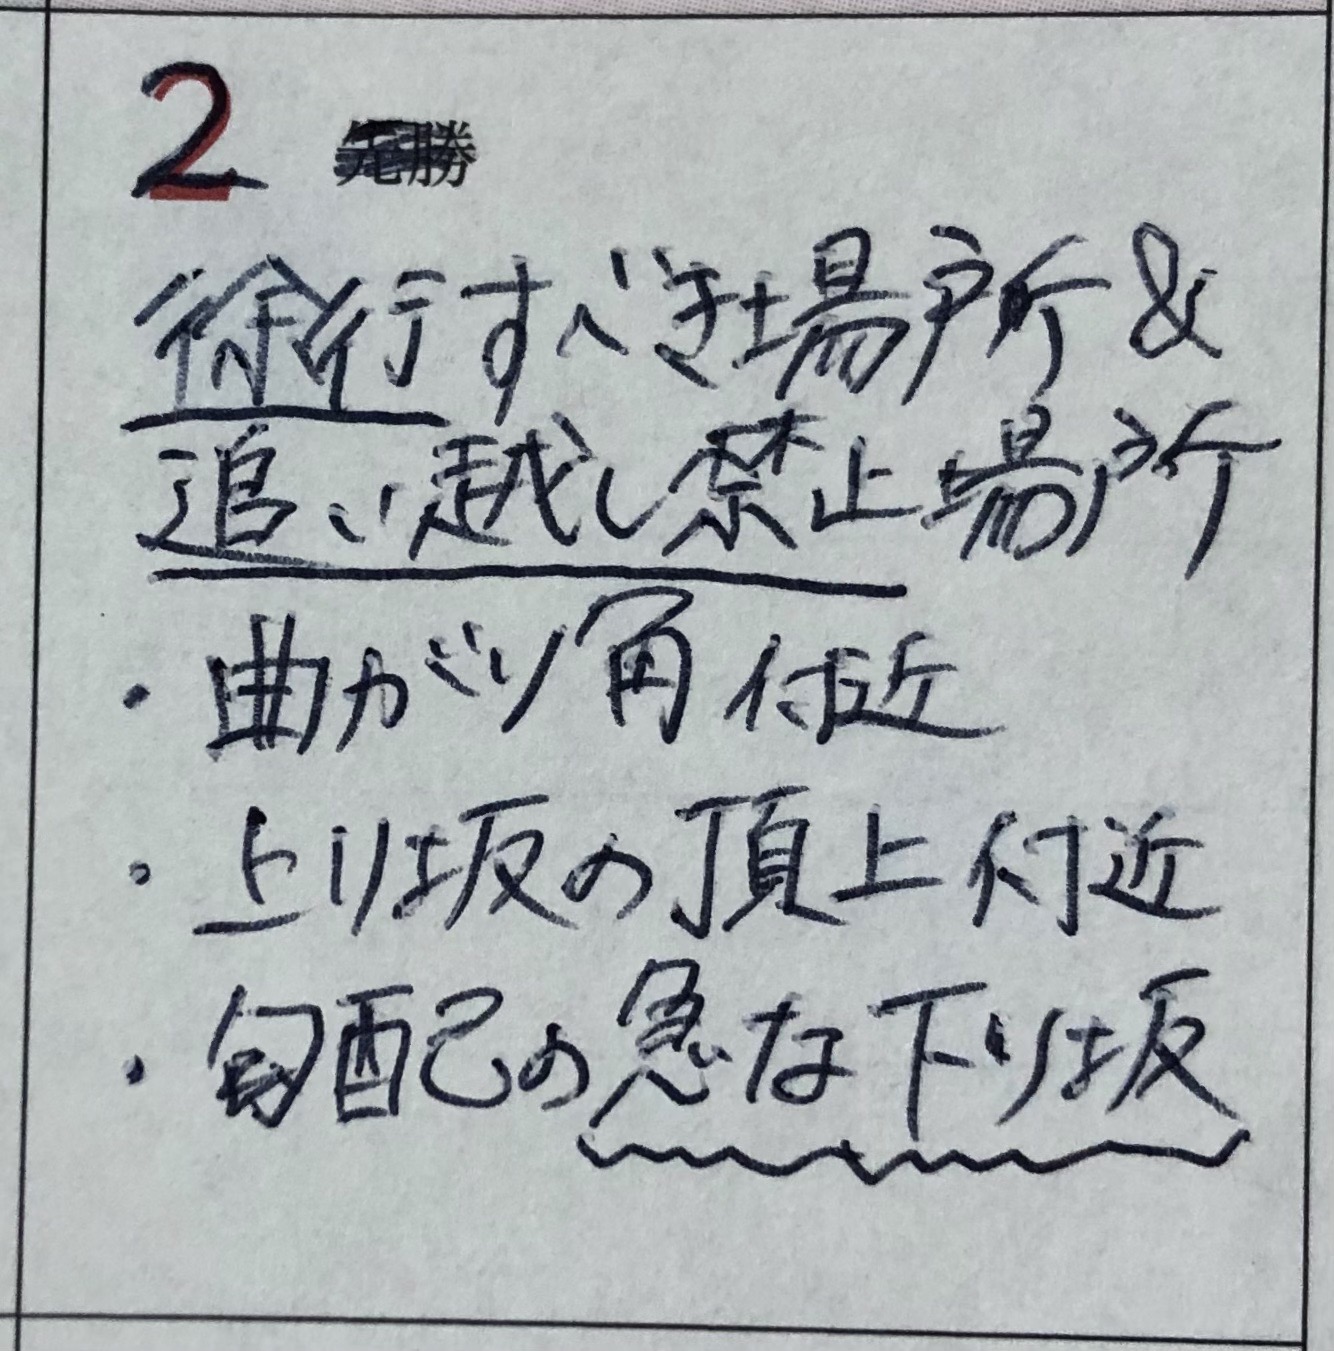 2 先勝
徐行すべき場所&
追い越し禁止場所
・曲がり角付近
・上り坂の頂上付近
・勾配の急な下り坂